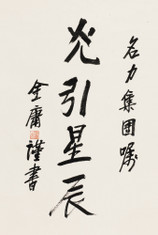 名力集团嘱
光引星辰
金庸 謹書